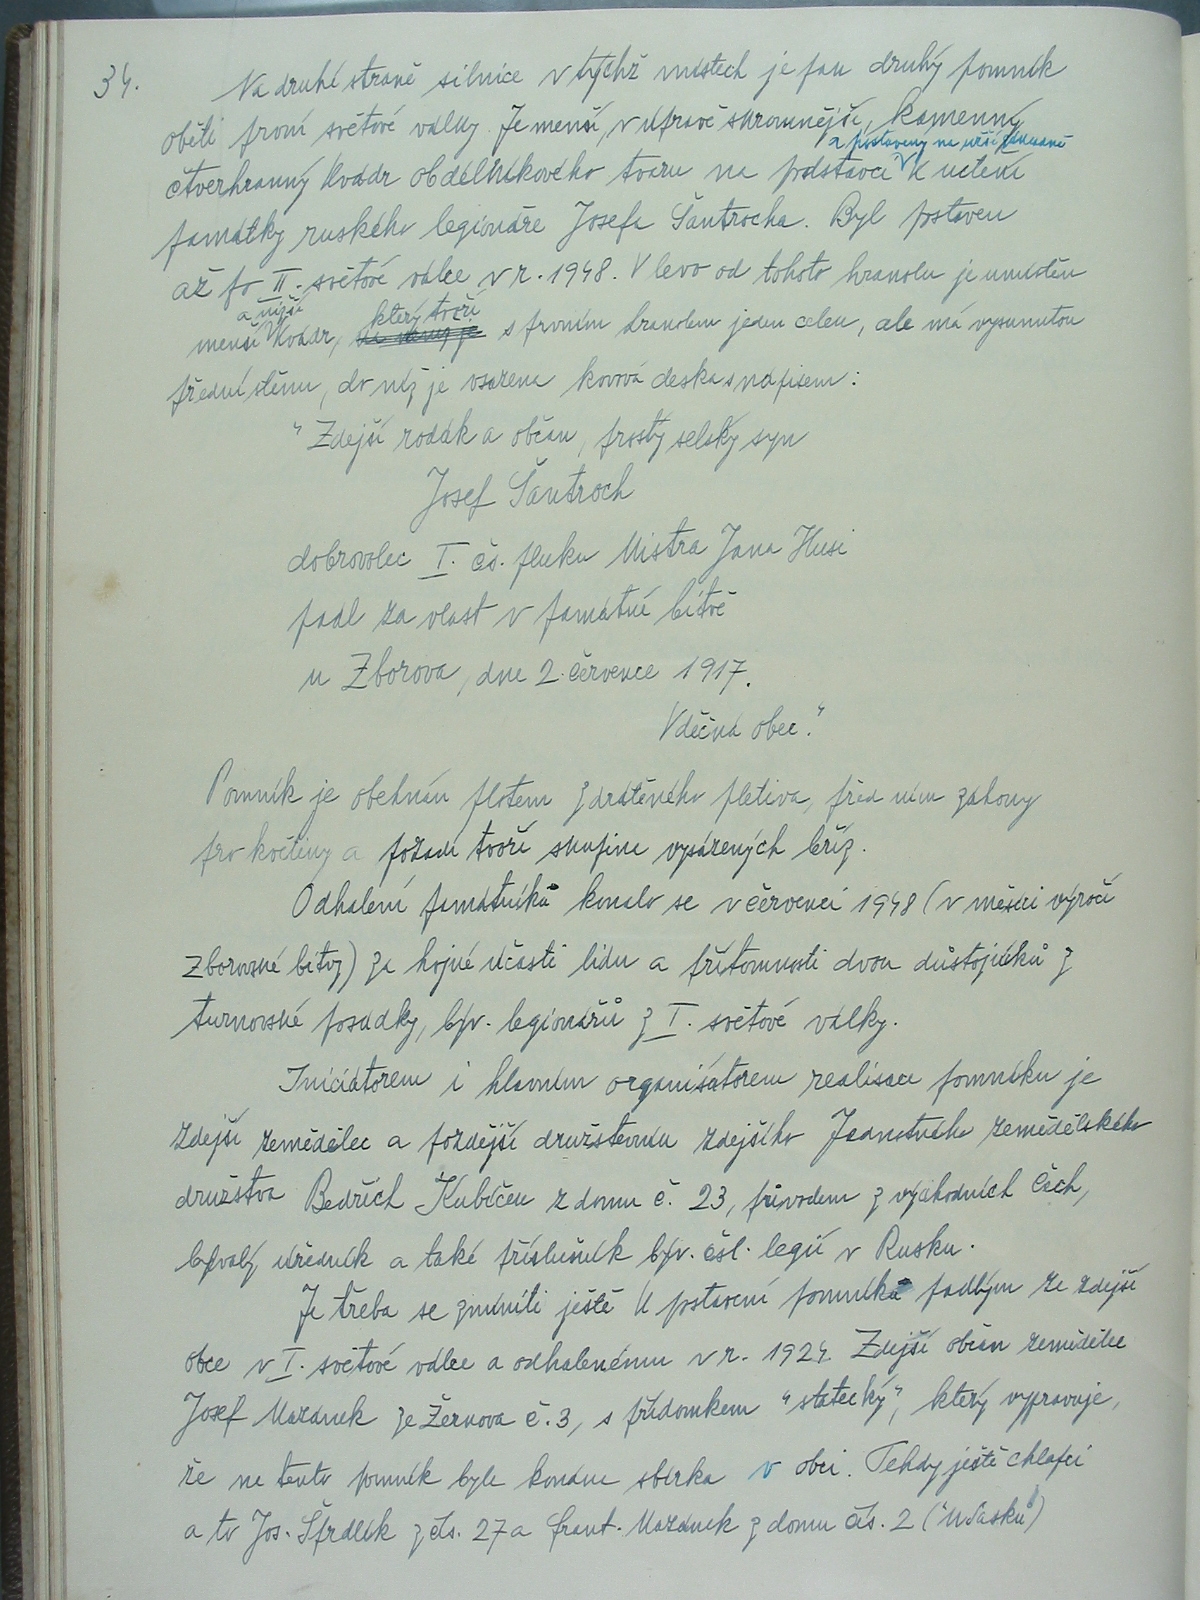 34.
Na druhé straně silnice v týchž místech je pak druhý pomník
oběti první světové války. Je menší, v úpravě skromnější, kamenný
a postavený na užší
čtverhranný kvádr obdélníkového tvaru na podstavci k uctění
památky ruského legionáře Josefa Šantrocha. Byl postaven
až po II. světové válce v r. 1948. V levo od tohoto hranolu je umístěn
a nižší který tvoří
menší kvádr, s prvním hranolem jeden celek, ale má vysunutou
přední stěnu, do níž je vsazena kovová deska s nápisem:
"Zdejší rodák a občan, prostý selský syn
Josef Šantroch
dobrovolec I. čs. pluku Mistra Jana Husi
padl za vlast v památné bitvě
u Zborova, dne 2. července 1917.
Vděčná obec."
Pomník je obehnán plotem z drátěného pletiva, před ním záhony
pro květiny a pozadí tvoří skupina vysázených bříz.
Odhalení památníku konalo se v červenci 1948 (v měsíci výročí
zborovské bitvy) za hojné účasti lidu a přítomnosti dvou důstojníků z
turnovské posádky, býv. legionářů z I. světové války.
Iniciátorem i hlavním organisátorem realisace pomníku je
zdejší zemědělec a pozdější družstevník zdejšího Jednotného zemědělského
družstva Bedřich Kubíček z domu č. 23, původem z východních Čech,
bývalý úředník a také příslušník býv. čsl. legií v Rusku.
Je třeba se zmíniti ještě k postavení pomníku padlým ze zdejší
obce v I. světové válce a odhalenému v r. 1924. Zdejší občan zemědělec
Josef Mazánek ze Žernova č. 3, s přídomkem "statecký", který vypravuje,
že na tento pomník byla konána sbírka v obci. Tehdy ještě chlapci
a to Jos. Šfrdlík z čís. 27 a Frant. Mazánek z domu čís. 2 ("u Vašků")